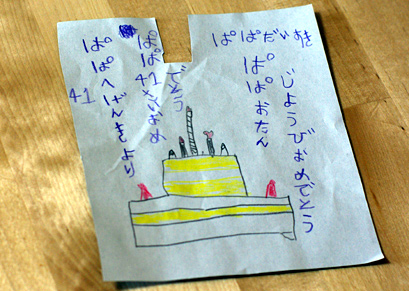 ぱぱだいすき
ぱぱおたん
じょうびおめでとう
ぱぱ41さいおめ
でとう
ぱぱへげんきより
41